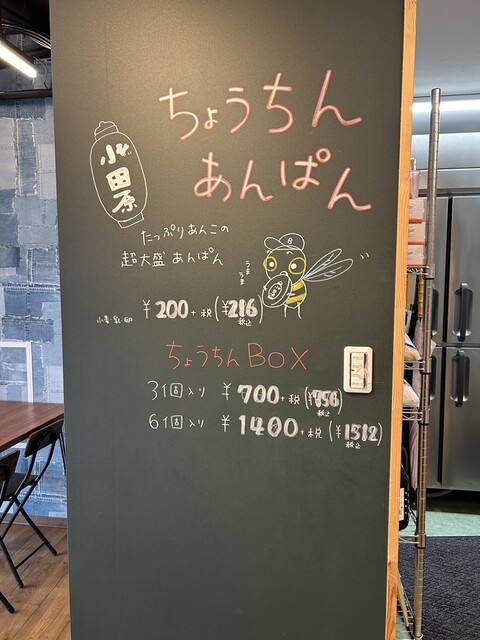 ちょうちん
あんぱん
小田原
たっぷりあんこの
超大盛 あんぱん
うま
うま
B
小麦・乳・卵
¥200+税(¥216)
税込
ちょうちんBOX
3個入り ¥700+税(¥756)
税込
6個入り ¥1400+税(¥1512)
税込